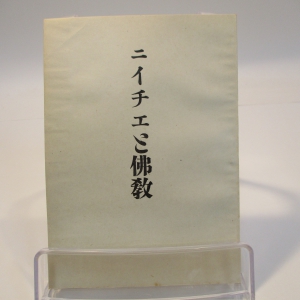 ニイチエと佛教